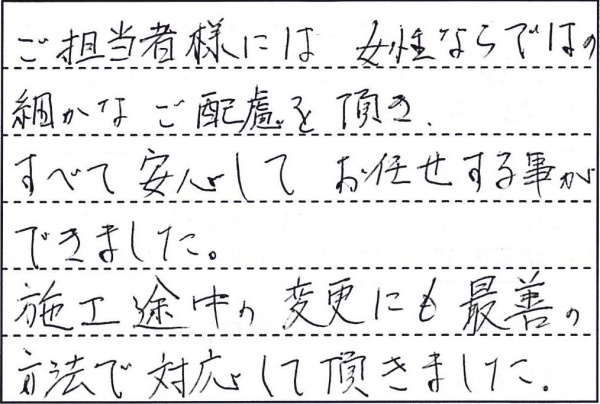 ご担当者様には 女性ならではの
細かな ご配慮を 頂き、
すべて 安心して お任せする事が
できました。
施工途中の 変更にも 最善の
方法で 対応して 頂きました。